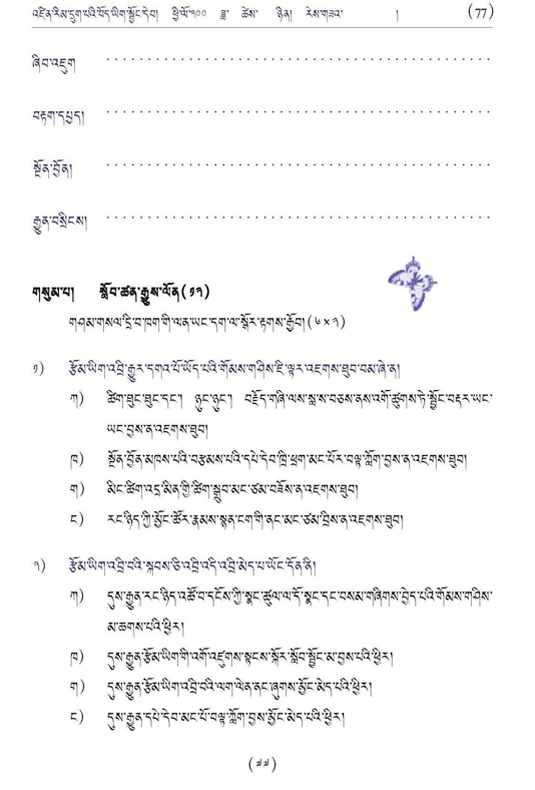 འཛིན་རིམ་དྲུག་པའི་བོད་ཡིག་སྦྱོང་དེབ། ཕྱི་ལོ་༢༠༠ ཟླ་ ཚེས་ ཉིན། རེས་གཟའ་ ། (77)
ཞིབ་འཇུག
བརྟག་དཔྱད།
སྔོན་བྱོན།
རྒྱུན་བསྲིངས།
གསུམ་པ། སློབ་ཚན་རྒྱུས་ལོན (༡༢)
གཤམ་གསལ་དྲི་བ་ཁག་གི་ལན་ཡང་དག་ལ་སྐོར་རྟགས་རྒྱོབ། (༦×༢)
༡) རྩོམ་ཡིག་འབྲི་རྒྱུར་དགའ་པོ་ཡོད་པའི་གོམས་གཤིས་ཇི་ལྟར་འཇགས་ཐུབ་བམ་ཞེ་ན།
ཀ) ཚིག་ཐུང་ཐུང་དང་། ཉུང་ཉུང་། བརྗོད་གཞི་ལས་སླ་ས་བཅས་ནས་འགོ་ཚུགས་ཏེ་སྦྱོང་བརྡར་ཡང་
ཡང་བྱས་ན་འཇགས་ཐུབ།
ཁ) སྔོན་བྱོན་མཁས་པའི་བརྩམས་པའི་དཔེ་དེབ་ཁྲི་ཕྲག་མང་པོར་བལྟ་ཀློག་བྱས་ན་འཇགས་ཐུབ།
ག) མིང་ཚིག་འདྲ་མིན་གྱི་ཚིག་སྒྲུབ་མང་ཙམ་བཟོས་ན་འཇགས་ཐུབ།
ང) རང་ཉིད་ཀྱི་མྱོང་ཚོར་རྣམས་སྙན་ངག་གི་ནང་མང་ཙམ་བྲིས་ན་འཇགས་ཐུབ།
༢) རྩོམ་ཡིག་འབྲི་བའི་སྐབས་ཅི་འབྲི་འདི་འབྲི་མེད་པ་ཡོང་དོན་ནི།
ཀ) དུས་རྒྱུན་རང་ཉིད་འཚོ་བ་དངོས་ཀྱི་སྣང་ཚུལ་ལ་དོ་སྣང་དང་བསམ་གཞིགས་བྱེད་པའི་གོམས་གཤིས་
མ་ཆགས་པའི་ཕྱིར།
ཁ) དུས་རྒྱུན་རྩོམ་ཡིག་གི་འགོ་འཛུགས་སྟངས་སྐོར་སློབ་སྦྱོང་མ་བྱས་པའི་ཕྱིར།
ག) དུས་རྒྱུན་རྩོམ་ཡིག་འབྲི་བའི་ལག་ལེན་ནང་ཞུགས་མྱོང་མེད་པའི་ཕྱིར།
ང) དུས་རྒྱུན་དཔེ་དེབ་མང་པོ་བལྟ་ཀློག་བྱས་མྱོང་མེད་པའི་ཕྱིར།
(༧༧)